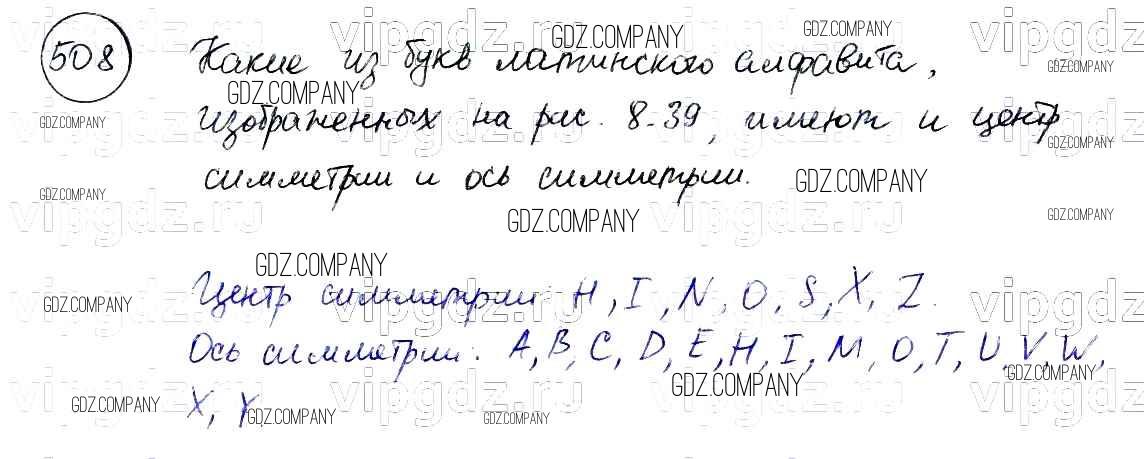 508 Какие из букв латинского алфавита,
изображенных на рис. 8.39, имеют и центр
симметрии и ось симметрии.
Центр симметрии: H, I, N, O, S, X, Z.
Ось симметрии: A, B, C, D, E, H, I, M, O, T, U, V, W,
X, Y
vipgdz.ru
GDZ.COMPANY